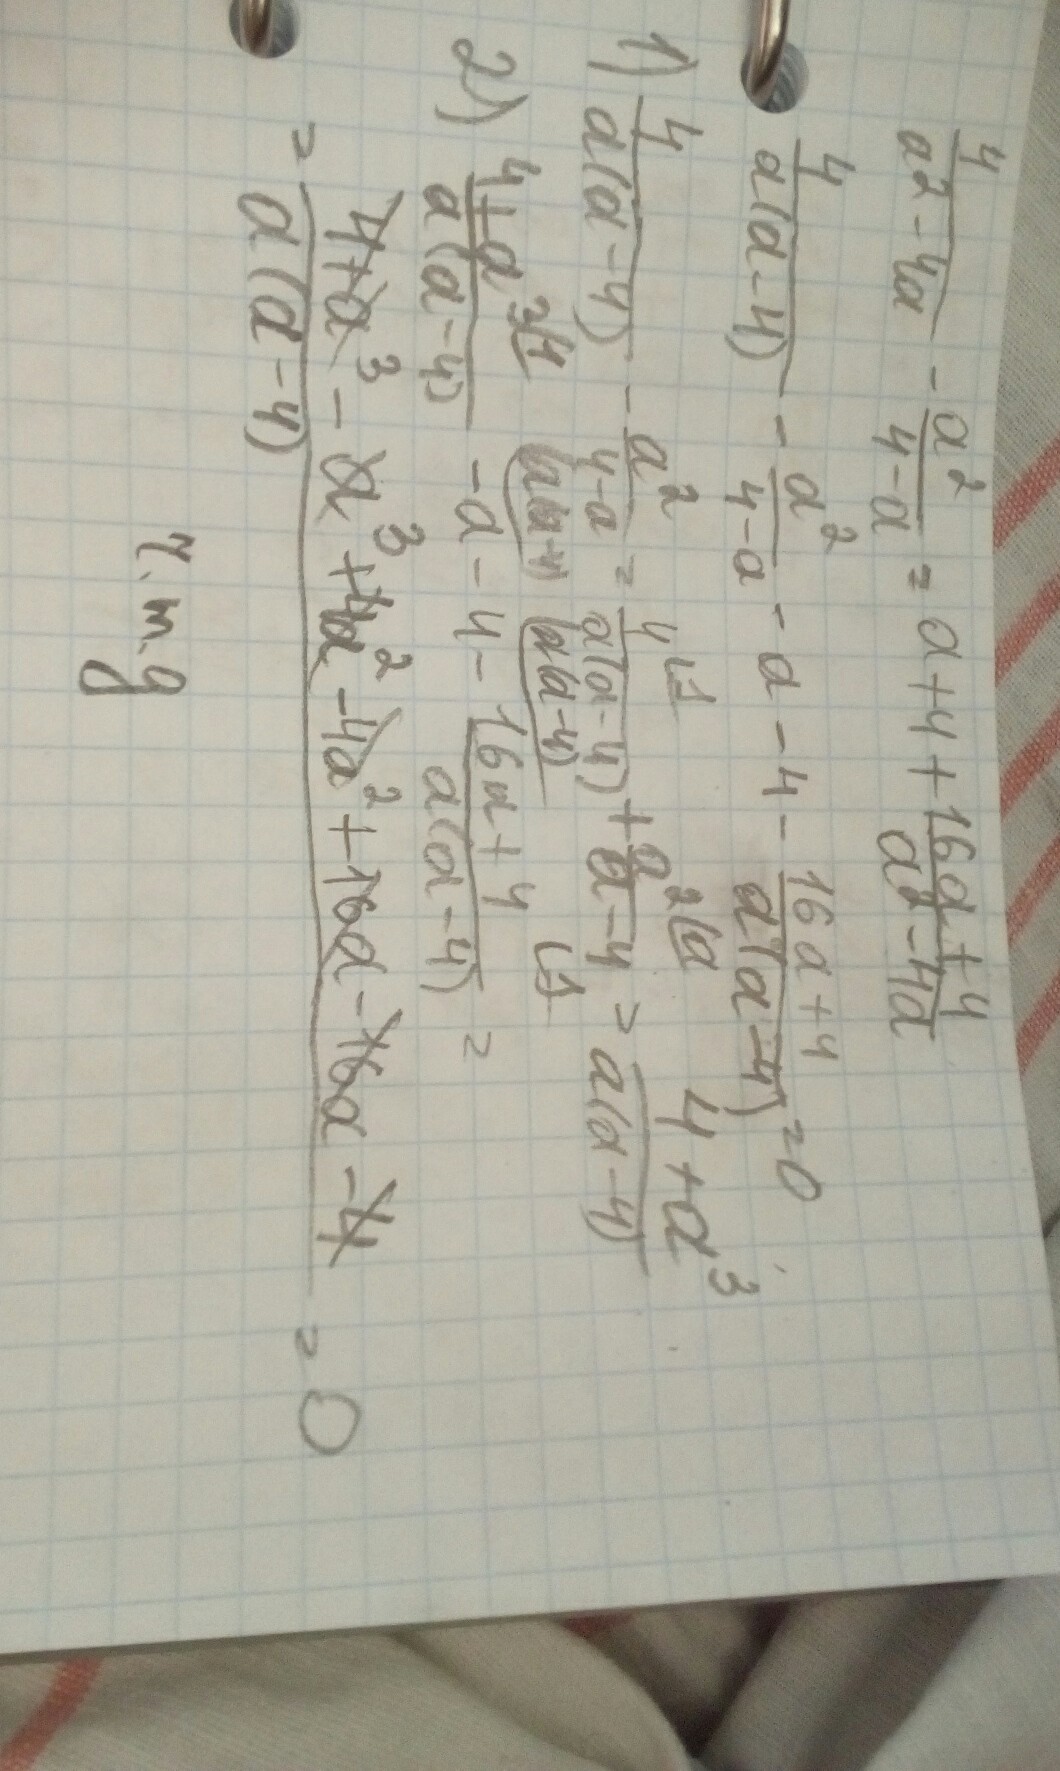 4/(a2-4a) - a²/(4-a) = a+4 + (16a+4)/(a2-4a)
4/(a(a-4)) - a²/(4-a) - a - 4 - (16a+4)/(a(a-4)) = 0
1) 4/(a(a-4)) - a²/(4-a) = 4/(a(a-4)) + a²/(a-4) = (4+a³)/(a(a-4))
2) (4+a³)/(a(a-4)) - a - 4 - (16a+4)/(a(a-4)) =
= (4+a³-a³+4a²-4a²+16a-16a-4)/(a(a-4)) = 0
ч.т.д